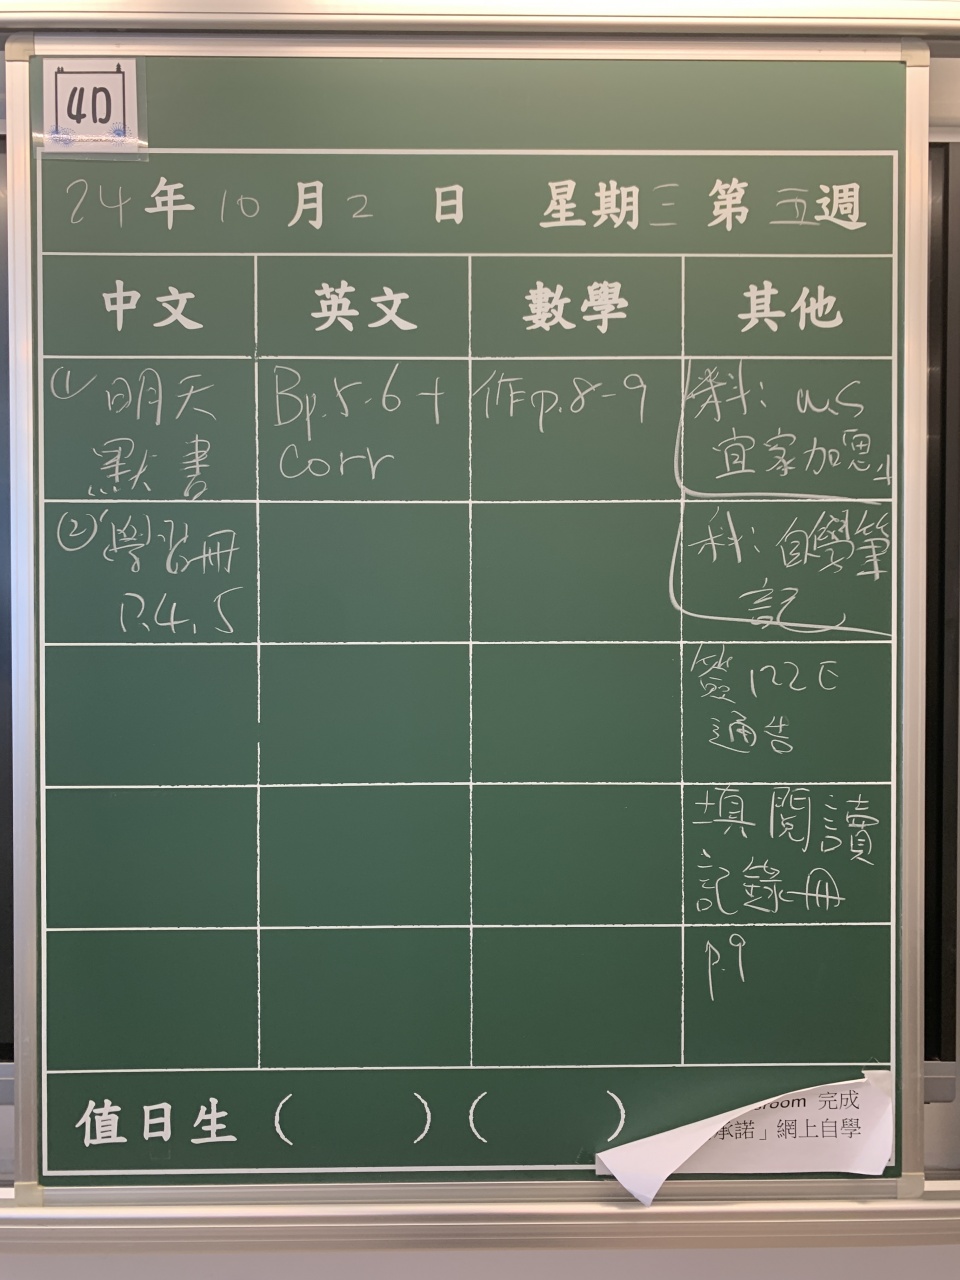 4D
24年10月2日 星期三 第五週
中文 英文 數學 其他
① 明天
默書
② 學習冊
P.4, 5
Bp.5-6+
corr
作p.8-9
常科: w.s
宜家加恩+
科: 自學筆
記
簽122E
通告
填閱讀
記錄冊
p.9
值日生 ( ) ( )
room 完成
承諾」網上自學